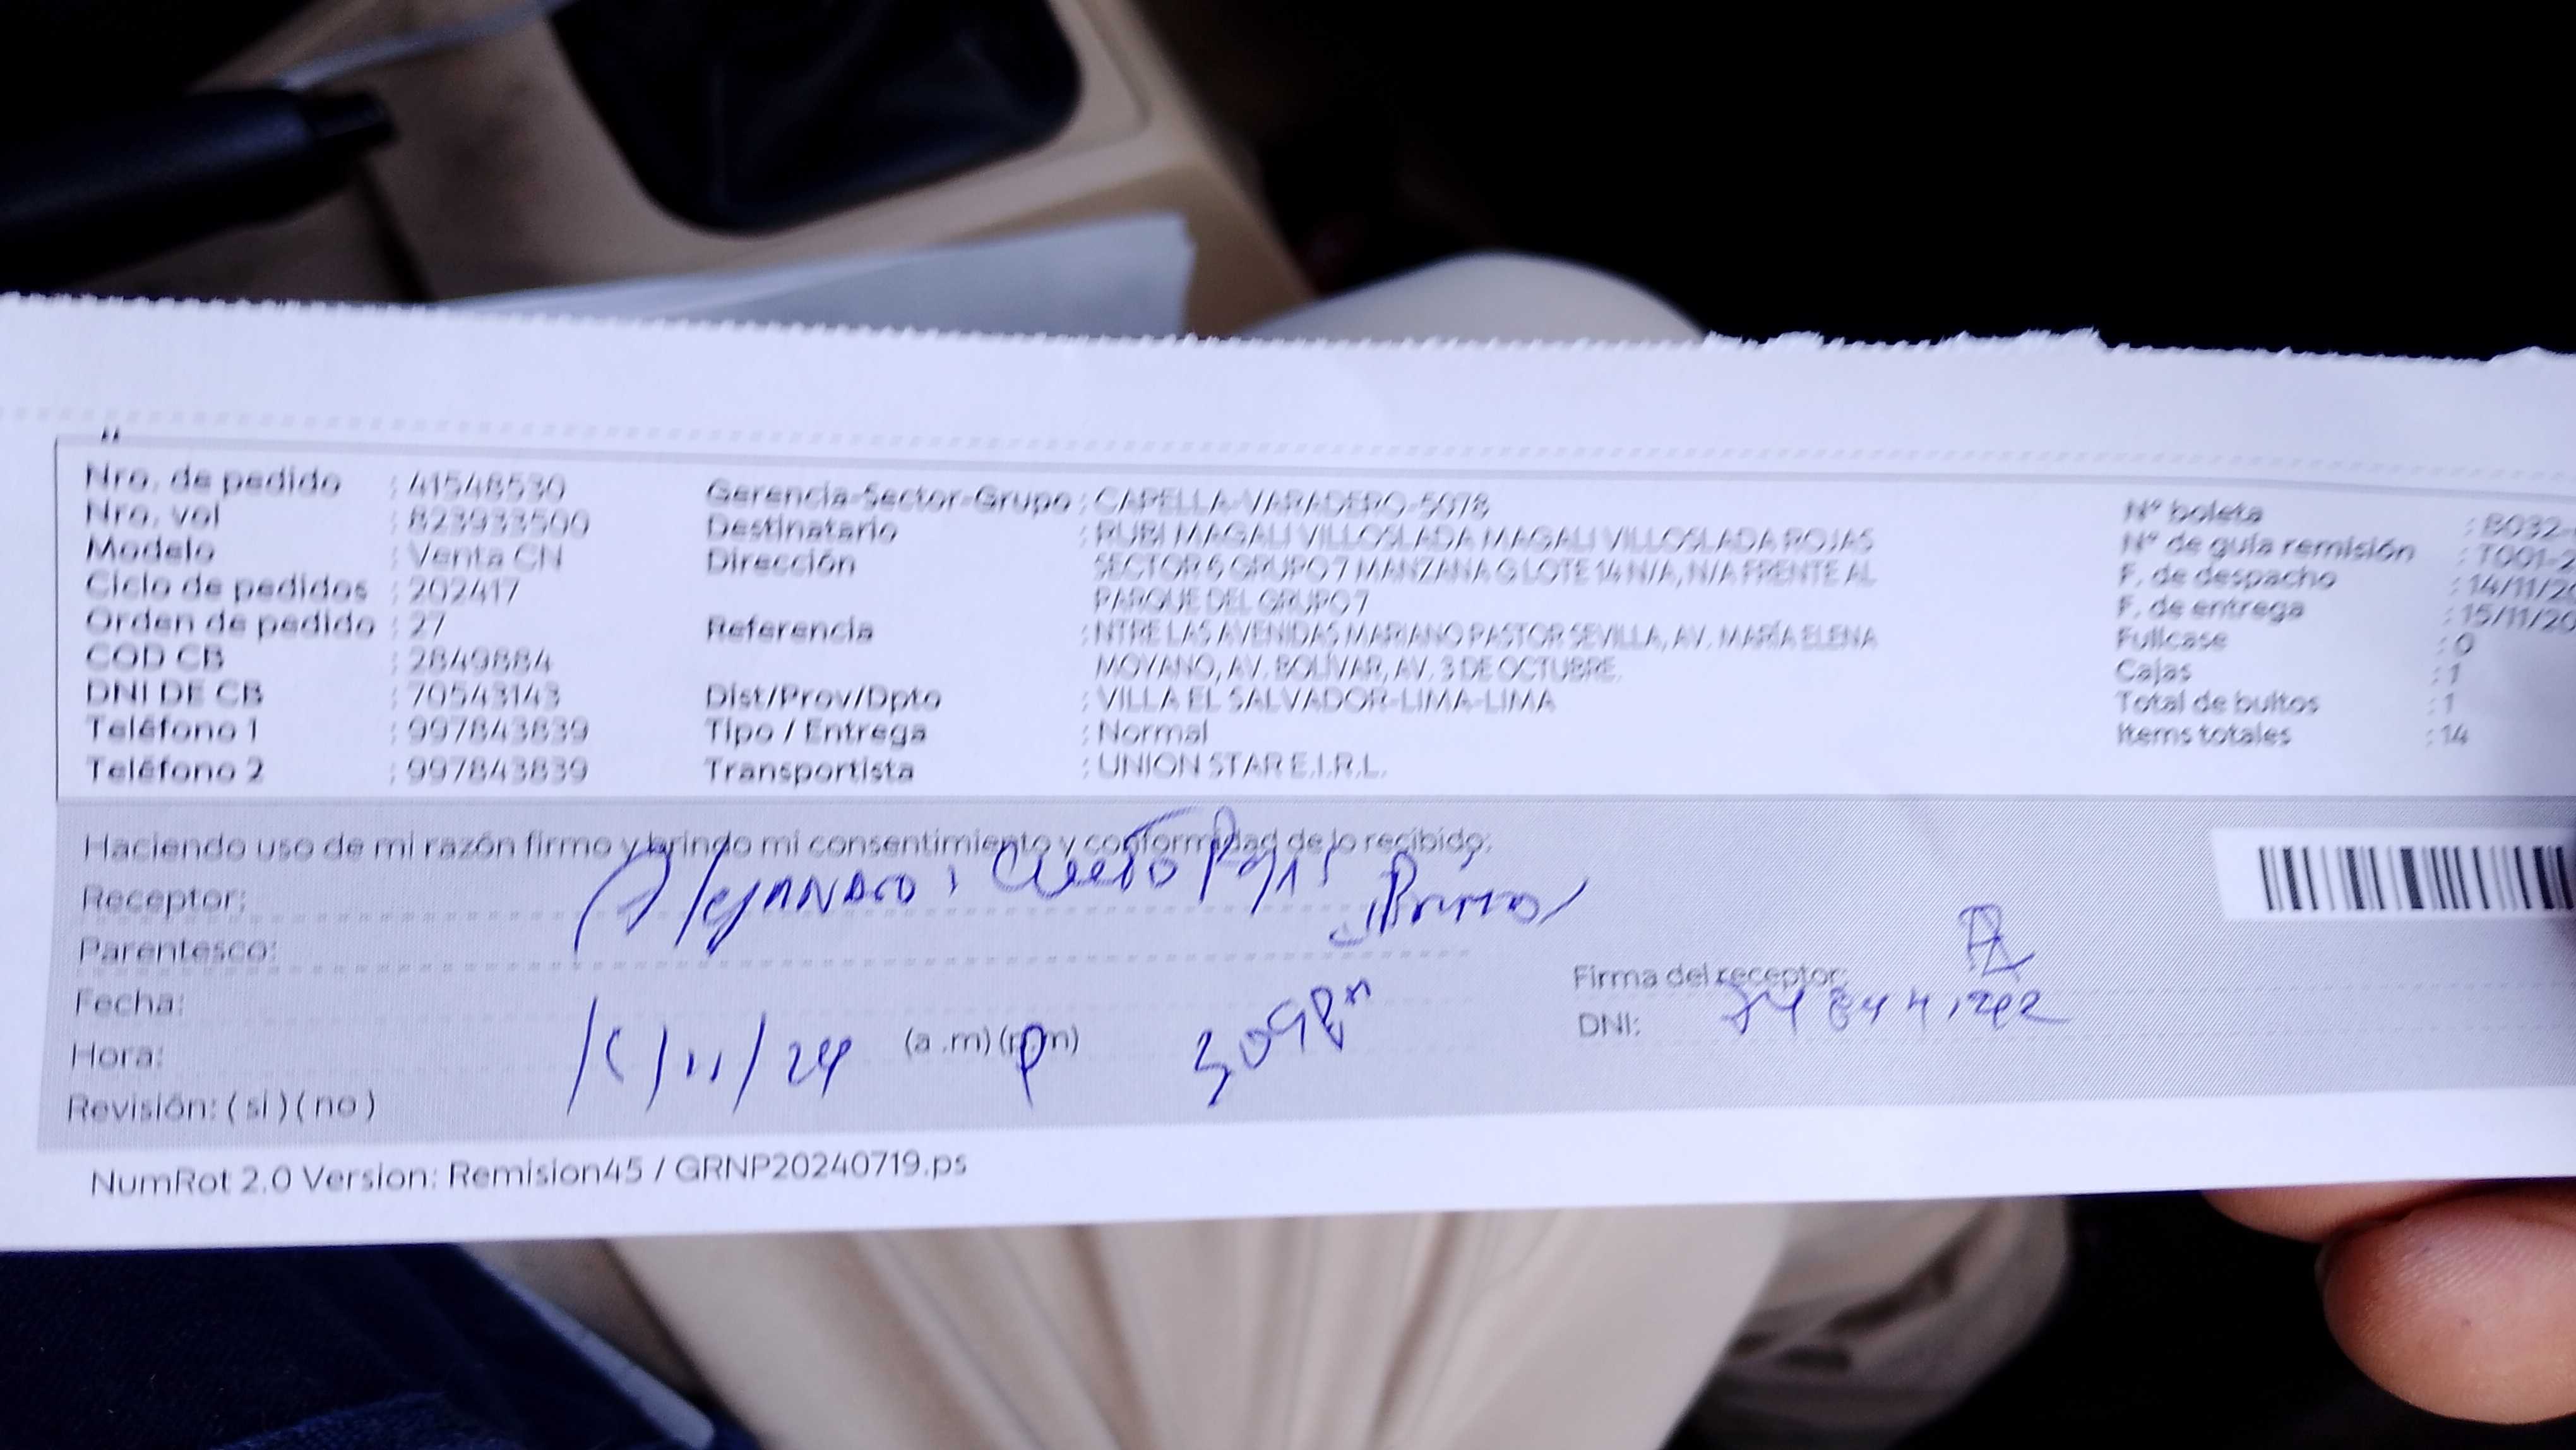 Nro. de pedido : 41548530
Nro. vol : 823933500
Modelo : Venta CN
Ciclo de pedidos : 202417
Orden de pedido : 27
COD CB : 2849884
DNI DE CB : 70543143
Teléfono 1 : 997843839
Teléfono 2 : 997843839
Gerencia-Sector-Grupo : CAPELLA-VARADERO-5078
Destinatario : RUBI MAGALI VILLOSLADA MAGALI VILLOSLADA ROJAS
Dirección SECTOR 6 GRUPO 7 MANZANA G LOTE 14 N/A, N/A FRENTE AL
PARQUE DEL GRUPO 7
Referencia : NTRE LAS AVENIDAS MARIANO PASTOR SEVILLA, AV. MARÍA ELENA
MOYANO, AV. BOLÍVAR, AV. 3 DE OCTUBRE.
Dist/Prov/Dpto : VILLA EL SALVADOR-LIMA-LIMA
Tipo / Entrega : Normal
Transportista : UNION STAR E.I.R.L.
Nº boleta : B032-
Nº de guía remisión : T001-2
F. de despacho : 14/11/20
F. de entrega : 15/11/20
Fullcase : 0
Cajas : 1
Total de bultos : 1
Items totales : 14
Haciendo uso de mi razón firmo y brindo mi consentimiento y conformidad de lo recibido:
Receptor: Alejandro
Parentesco:
Fecha:
Hora: 15/11/24 (a .m) (p.m)
Revisión: ( si ) ( no )
Firma del receptor:
DNI:
NumRot 2.0 Version: Remision45 / GRNP20240719.ps